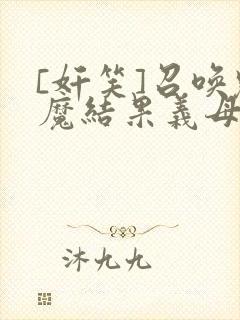 [奸笑]召唤
魔结果義母
沐九九